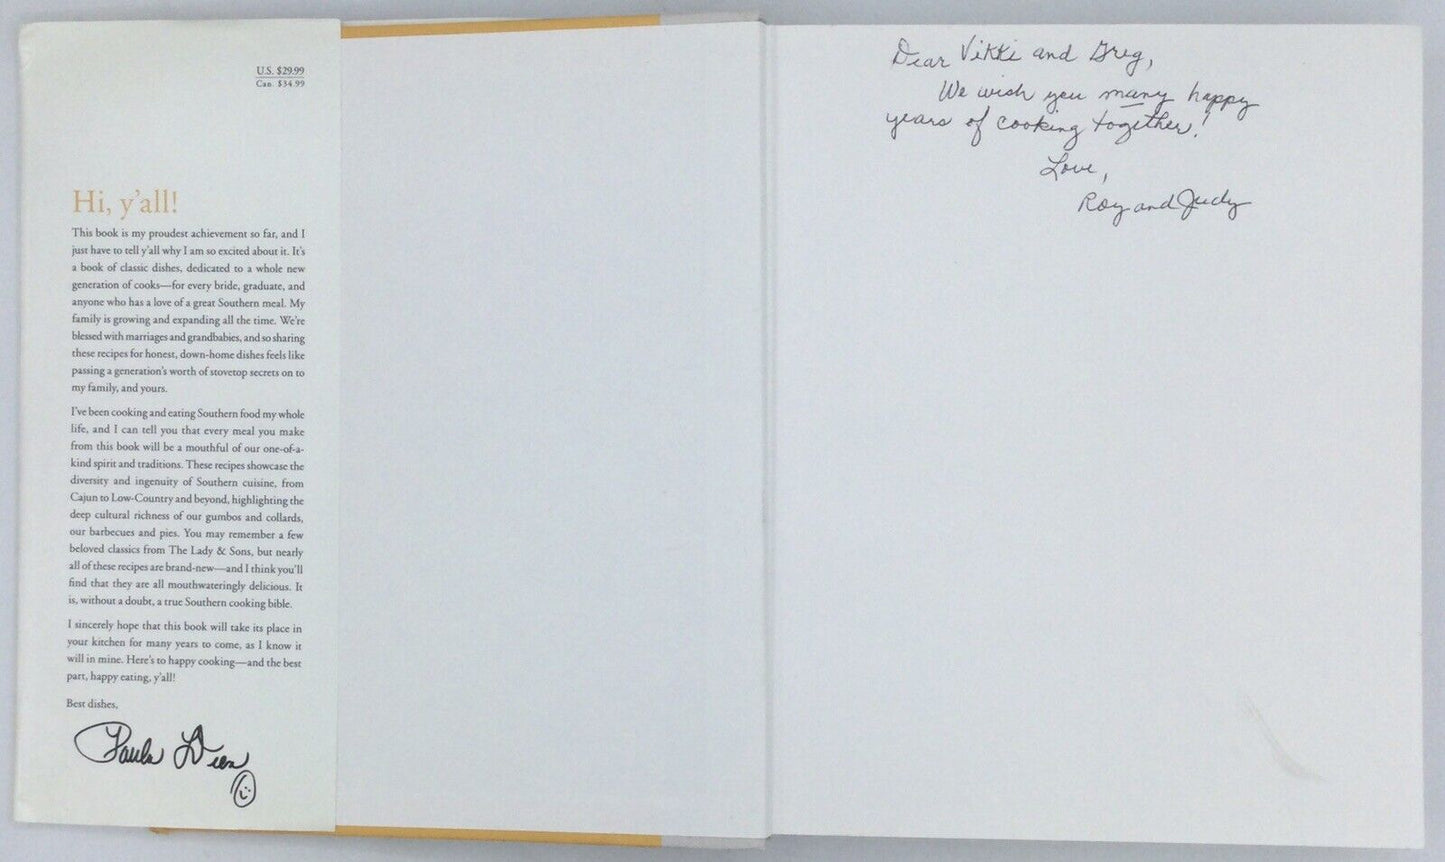 U.S. $29.99
Can. $34.99
Hi, y'all!
This book is my proudest achievement so far, and I
just have to tell y'all why I am so excited about it. It's
a book of classic dishes, dedicated to a whole new
generation of cooks—for every bride, graduate, and
anyone who has a love of a great Southern meal. My
family is growing and expanding all the time. We're
blessed with marriages and grandbabies, and so sharing
these recipes for honest, down-home dishes feels like
passing a generation's worth of stovetop secrets on to
my family, and yours.
I've been cooking and eating Southern food my whole
life, and I can tell you that every meal you make
from this book will be a mouthful of our one-of-a-
kind spirit and traditions. These recipes showcase the
diversity and ingenuity of Southern cuisine, from
Cajun to Low-Country and beyond, highlighting the
deep cultural richness of our gumbos and collards,
our barbecues and pies. You may remember a few
beloved classics from The Lady & Sons, but nearly
all of these recipes are brand-new—and I think you'll
find that they are all mouthwateringly delicious. It
is, without a doubt, a true Southern cooking bible.
I sincerely hope that this book will take its place in
your kitchen for many years to come, as I know it
will in mine. Here's to happy cooking—and the best
part, happy eating, y'all!
Best dishes,
Paula Deen
Dear Vikki and Greg,
We wish you many happy
years of cooking together!
Love,
Roy and Judy